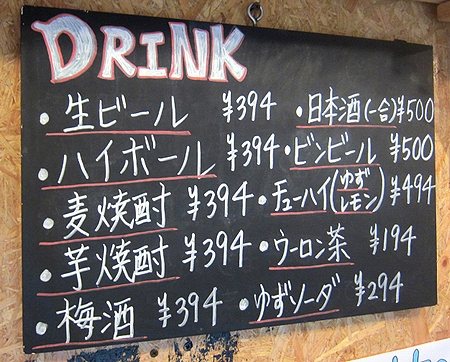 DRINK
・生ビール ¥394
・ハイボール ¥394
・麦焼酎 ¥394
・芋焼酎 ¥394
・梅酒 ¥394
・日本酒(一合) ¥500
・ビンビール ¥500
・チューハイ(ゆずレモン) ¥494
・ウーロン茶 ¥194
・ゆずソーダ ¥294